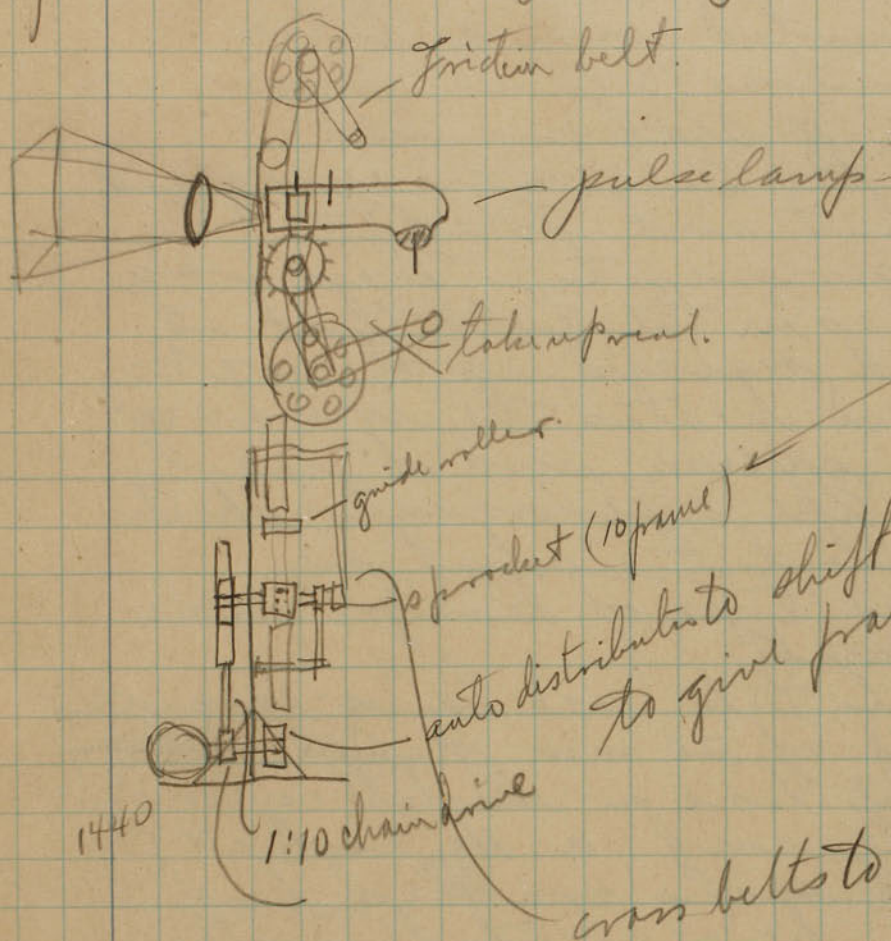 Friction belt.
pulse lamp
take up reel.
guide roller.
sprocket (10 frame)
auto distributor to shift
to give fra
1440
1:10 chain drive
cross belts to